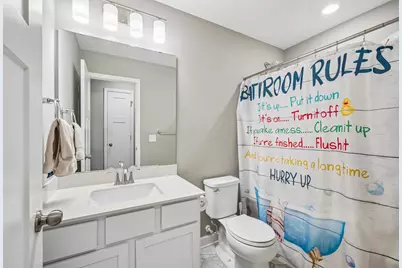 BATHROOM RULES
It's up..... Put it down
It's on..... Turn it off
If you make a mess.... Clean it up
If you're finished..... Flush it
And if you're taking a long time
HURRY UP